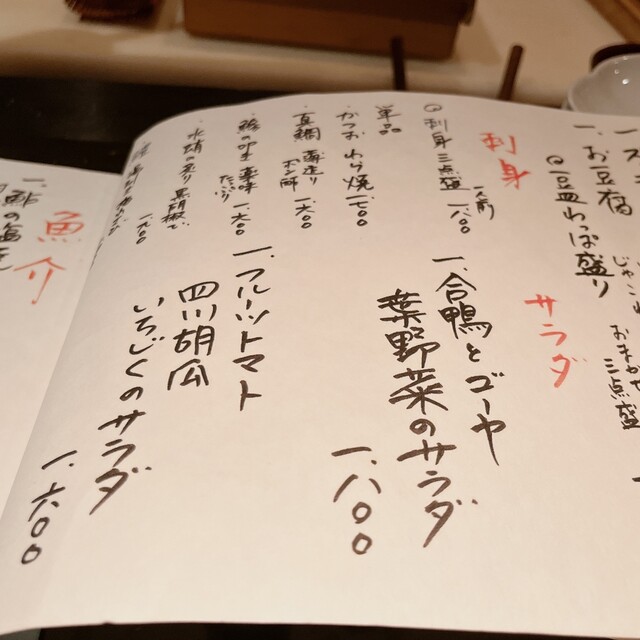 一、お豆腐
◎豆皿わっぱ盛り
三点盛
刺身
◎刺身三点盛 一人前 一、八〇〇
単品
かつおわら焼 一、七〇〇
真鯛 薄造り ポン酢 一、六〇〇
鯵の叩き 薬味たっぷり 一、六〇〇
水蛸の炙り 黒胡椒で 一、九〇〇
サラダ
一、合鴨とゴーヤ
葉野菜のサラダ
一、八〇〇
一、フルーツトマト
四川胡瓜
いちじくのサラダ
一、六〇〇
魚介